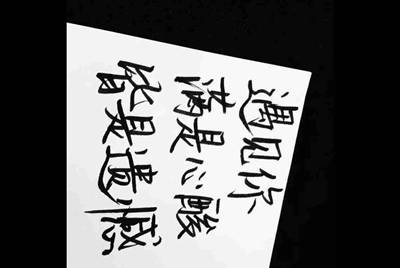 遇见你
满是心酸
皆是遗憾